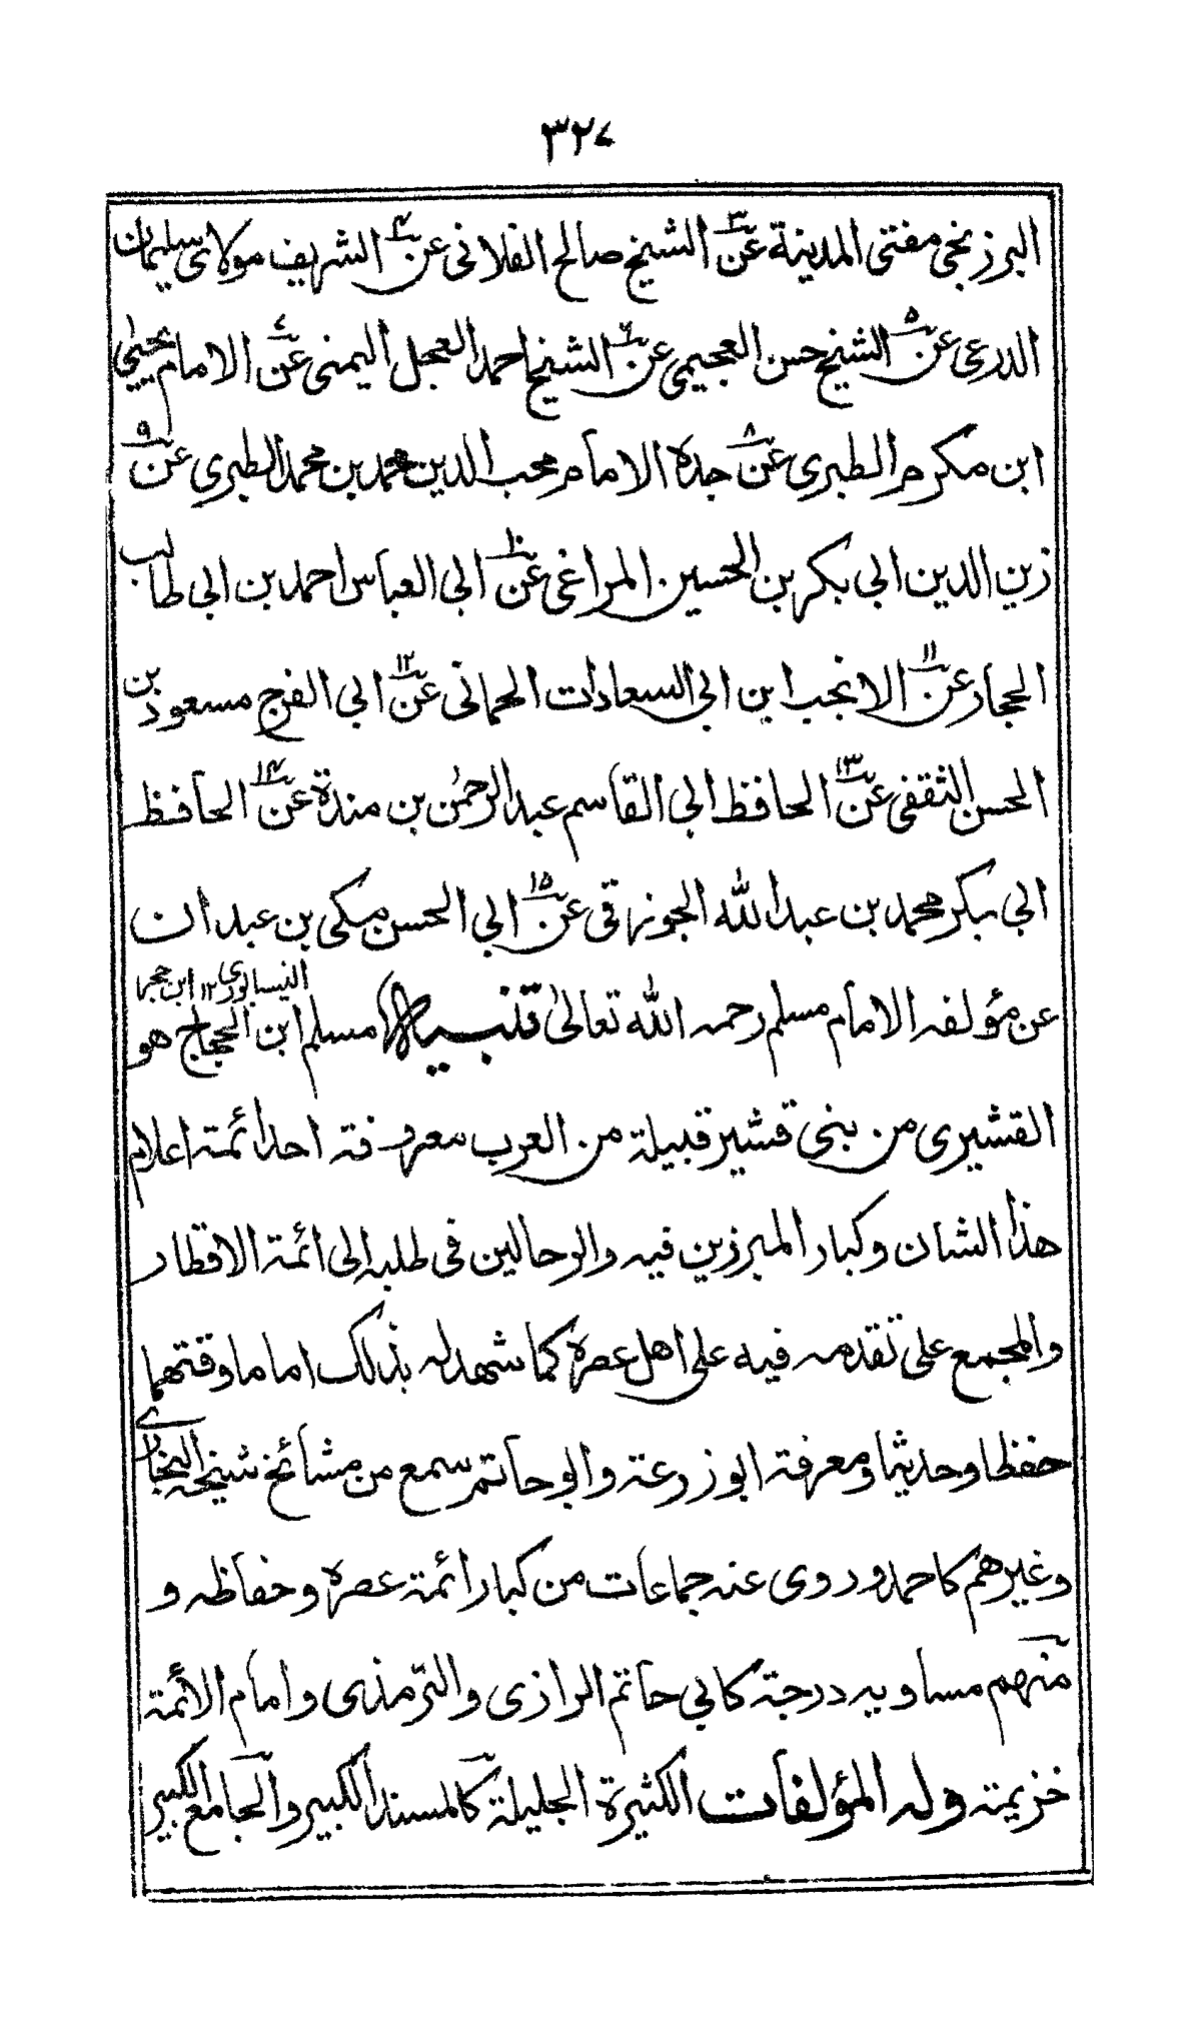 ٣٢٧
البرزنجى مفتى المدينة عن٣ الشيخ صالح الفلانى عن٤ الشريف مولاى سليمان
الدرعى عن٥ الشيخ حسن العجيمى عن٦ الشيخ احمد العجل اليمنى عن٧ الامام يحيىٰ
ابن مكرم الطبرى عن٨ جده الامام محب الدين محمد بن محمد الطبرى عن٩
زين الدين ابى بكر بن الحسين المراغى عن١٠ ابى العباس احمد بن ابى طالب
الحجار عن١١ الانجب ابن ابى السعادات الحمانى عن١٢ ابى الفرج مسعود بن
الحسن الثقفى عن١٣ الحافظ ابى القاسم عبد الرحمٰن بن مندة عن١٤ الحافظ
ابى بكر محمد بن عبد الله الجوزقى عن١٥ ابى الحسن مكى بن عبدان
النيسابورى ١٢ ابن حجر
عن مؤلفه الامام مسلم رحمه الله تعالىٰ تنبيه مسلم ابن الحجاج هو
القشيرى من بنى قشير قبيلة من العرب معروفة احد ائمة اعلام
هذا الشان وكبار المبرزين فيه والرحالين فى طلبه الى ائمة الاقطار
والمجمع على تقدمه فيه على اهل عصره كما شهد له بذلك اماما وقتهما
حفظا وحديثا ومعرفة ابو زرعة وابو حاتم سمع من مشائخ شيخه البخارى
وغيرهم كاحمد وروى عنه جماعات من كبار ائمة عصره وحفاظه و
منهم مساويه درجة كابي حاتم الرازى والترمذى وامام الائمة
خزيمة وله المؤلفات الكثيرة الجليلة كالمسند الكبير والجامع الكبير